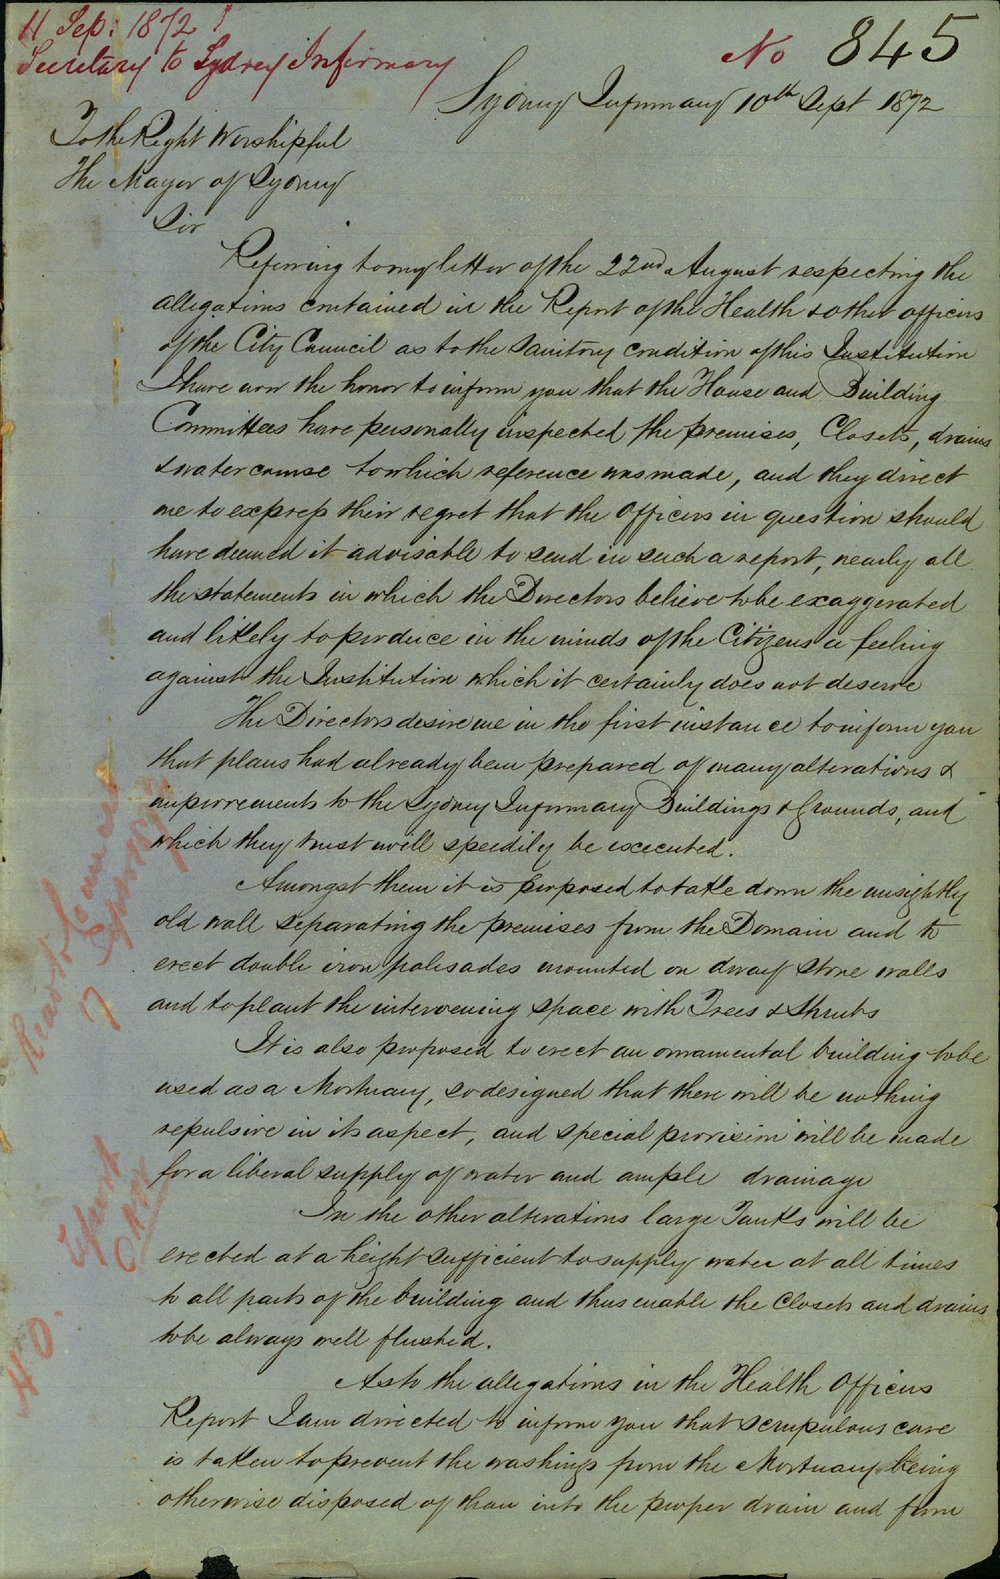 11 Sep: 1872
Secretary to Sydney Infirmary
No 845
Sydney Infirmary 10th Sept 1872
To the Right Worshipful
The Mayor of Sydney
Sir
Referring to my letter of the 22nd August respecting the
allegations contained in the Report of the Health & other officers
of the City Council as to the Sanitory condition of this Institution
I have now the honor to inform you that the House and Building
Committees have personally inspected the premises, Closets, drains
& watercourse to which reference was made, and they direct
me to express their regret that the Officers in question should
have deemed it advisable to send in such a report, nearly all
the statements in which the Directors believe to be exaggerated
and likely to produce in the minds of the Citizens a feeling
against the Institution which it certainly does not deserve
The Directors desire me in the first instance to inform you
that plans had already been prepared of many alterations &
improvements to the Sydney Infirmary Buildings & Grounds, and
which they trust will speedily be executed.
Amongst them it is proposed to take down the unsightly
old wall separating the premises from the Domain and to
erect double iron palisades mounted on dwarf stone walls
and to plant the intervening space with Trees & Shrubs
It is also proposed to erect an ornamental building to be
used as a Mortuary, so designed that there will be nothing
repulsive in its aspect, and special provision will be made
for a liberal supply of water and ample drainage
In the other alterations large Tanks will be
erected at a height sufficient to supply water at all times
to all parts of the building and thus enable the Closets and drains
to be always well flushed.
As to the allegations in the Health Officers
Report I am directed to inform you that scrupulous care
is taken to prevent the washings from the Mortuary being
otherwise disposed of than into the proper drain and from
Read to Council
Report